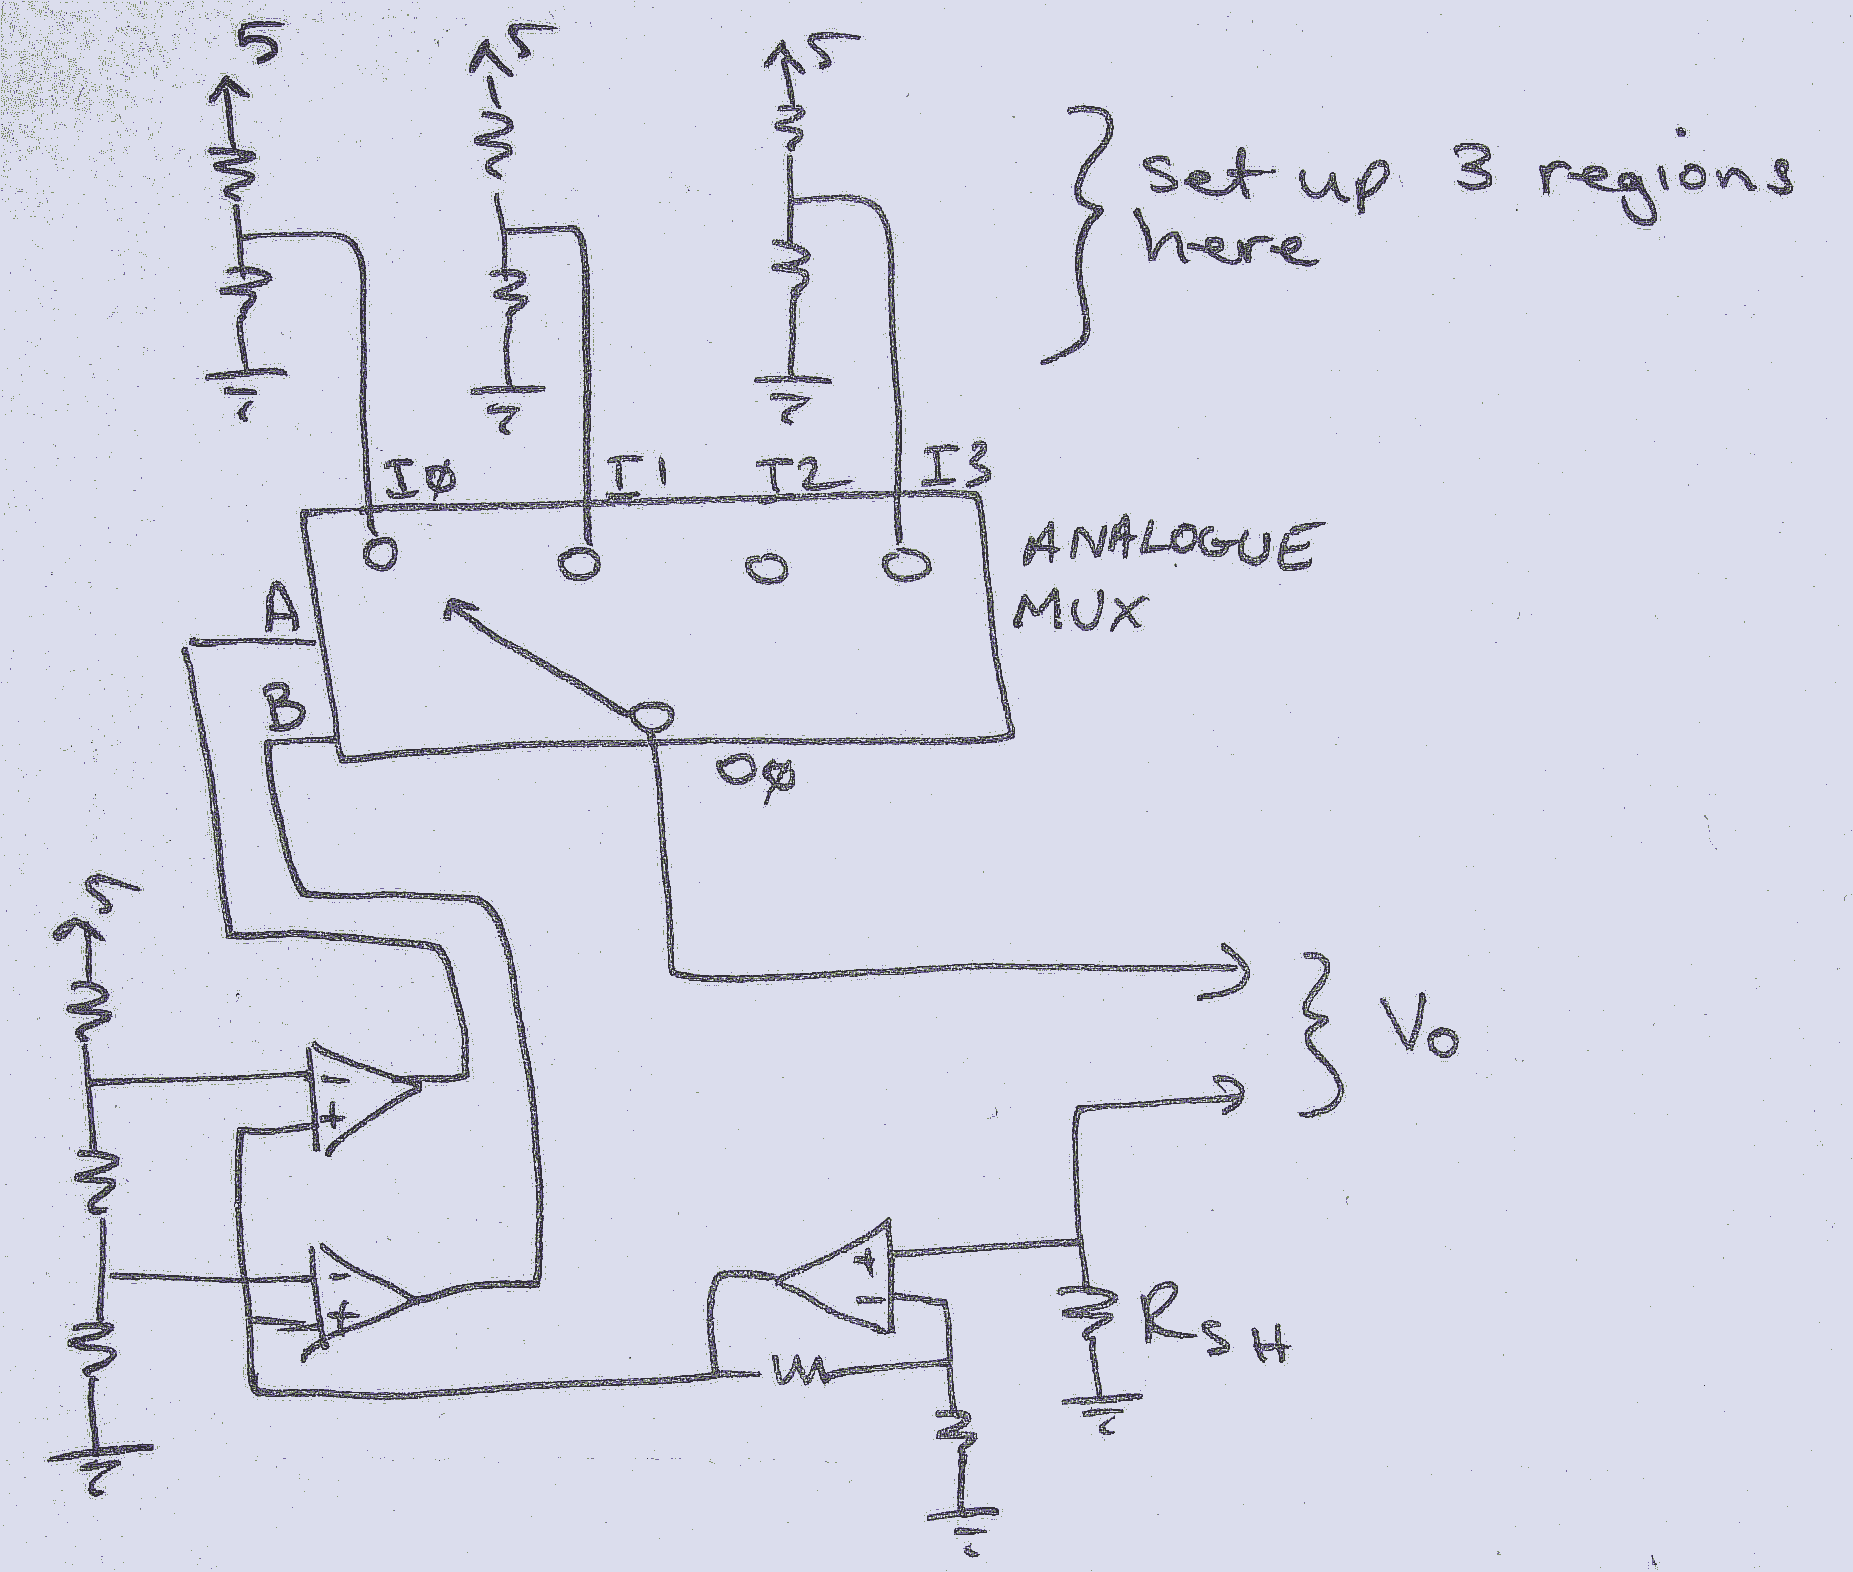 5 5 5
set up 3 regions
here
IØ I1 I2 I3
ANALOGUE
MUX
A
B
OØ
5
Vo
-
+
-
+
+
-
RSH